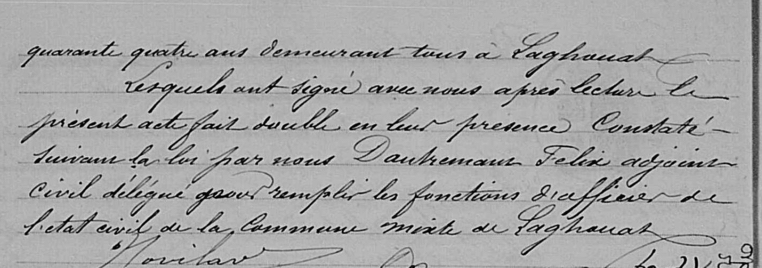 quarante quatre ans demeurant tous à Laghouat
Lesquels ont signé avec nous après lecture le
présent acte fait double en leur presence Constaté
suivant la loi par nous Dautremant Felix adjoint
civil délégué pour remplir les fonctions d'officier de
l'etat civil de la Commune mixte de Laghouat